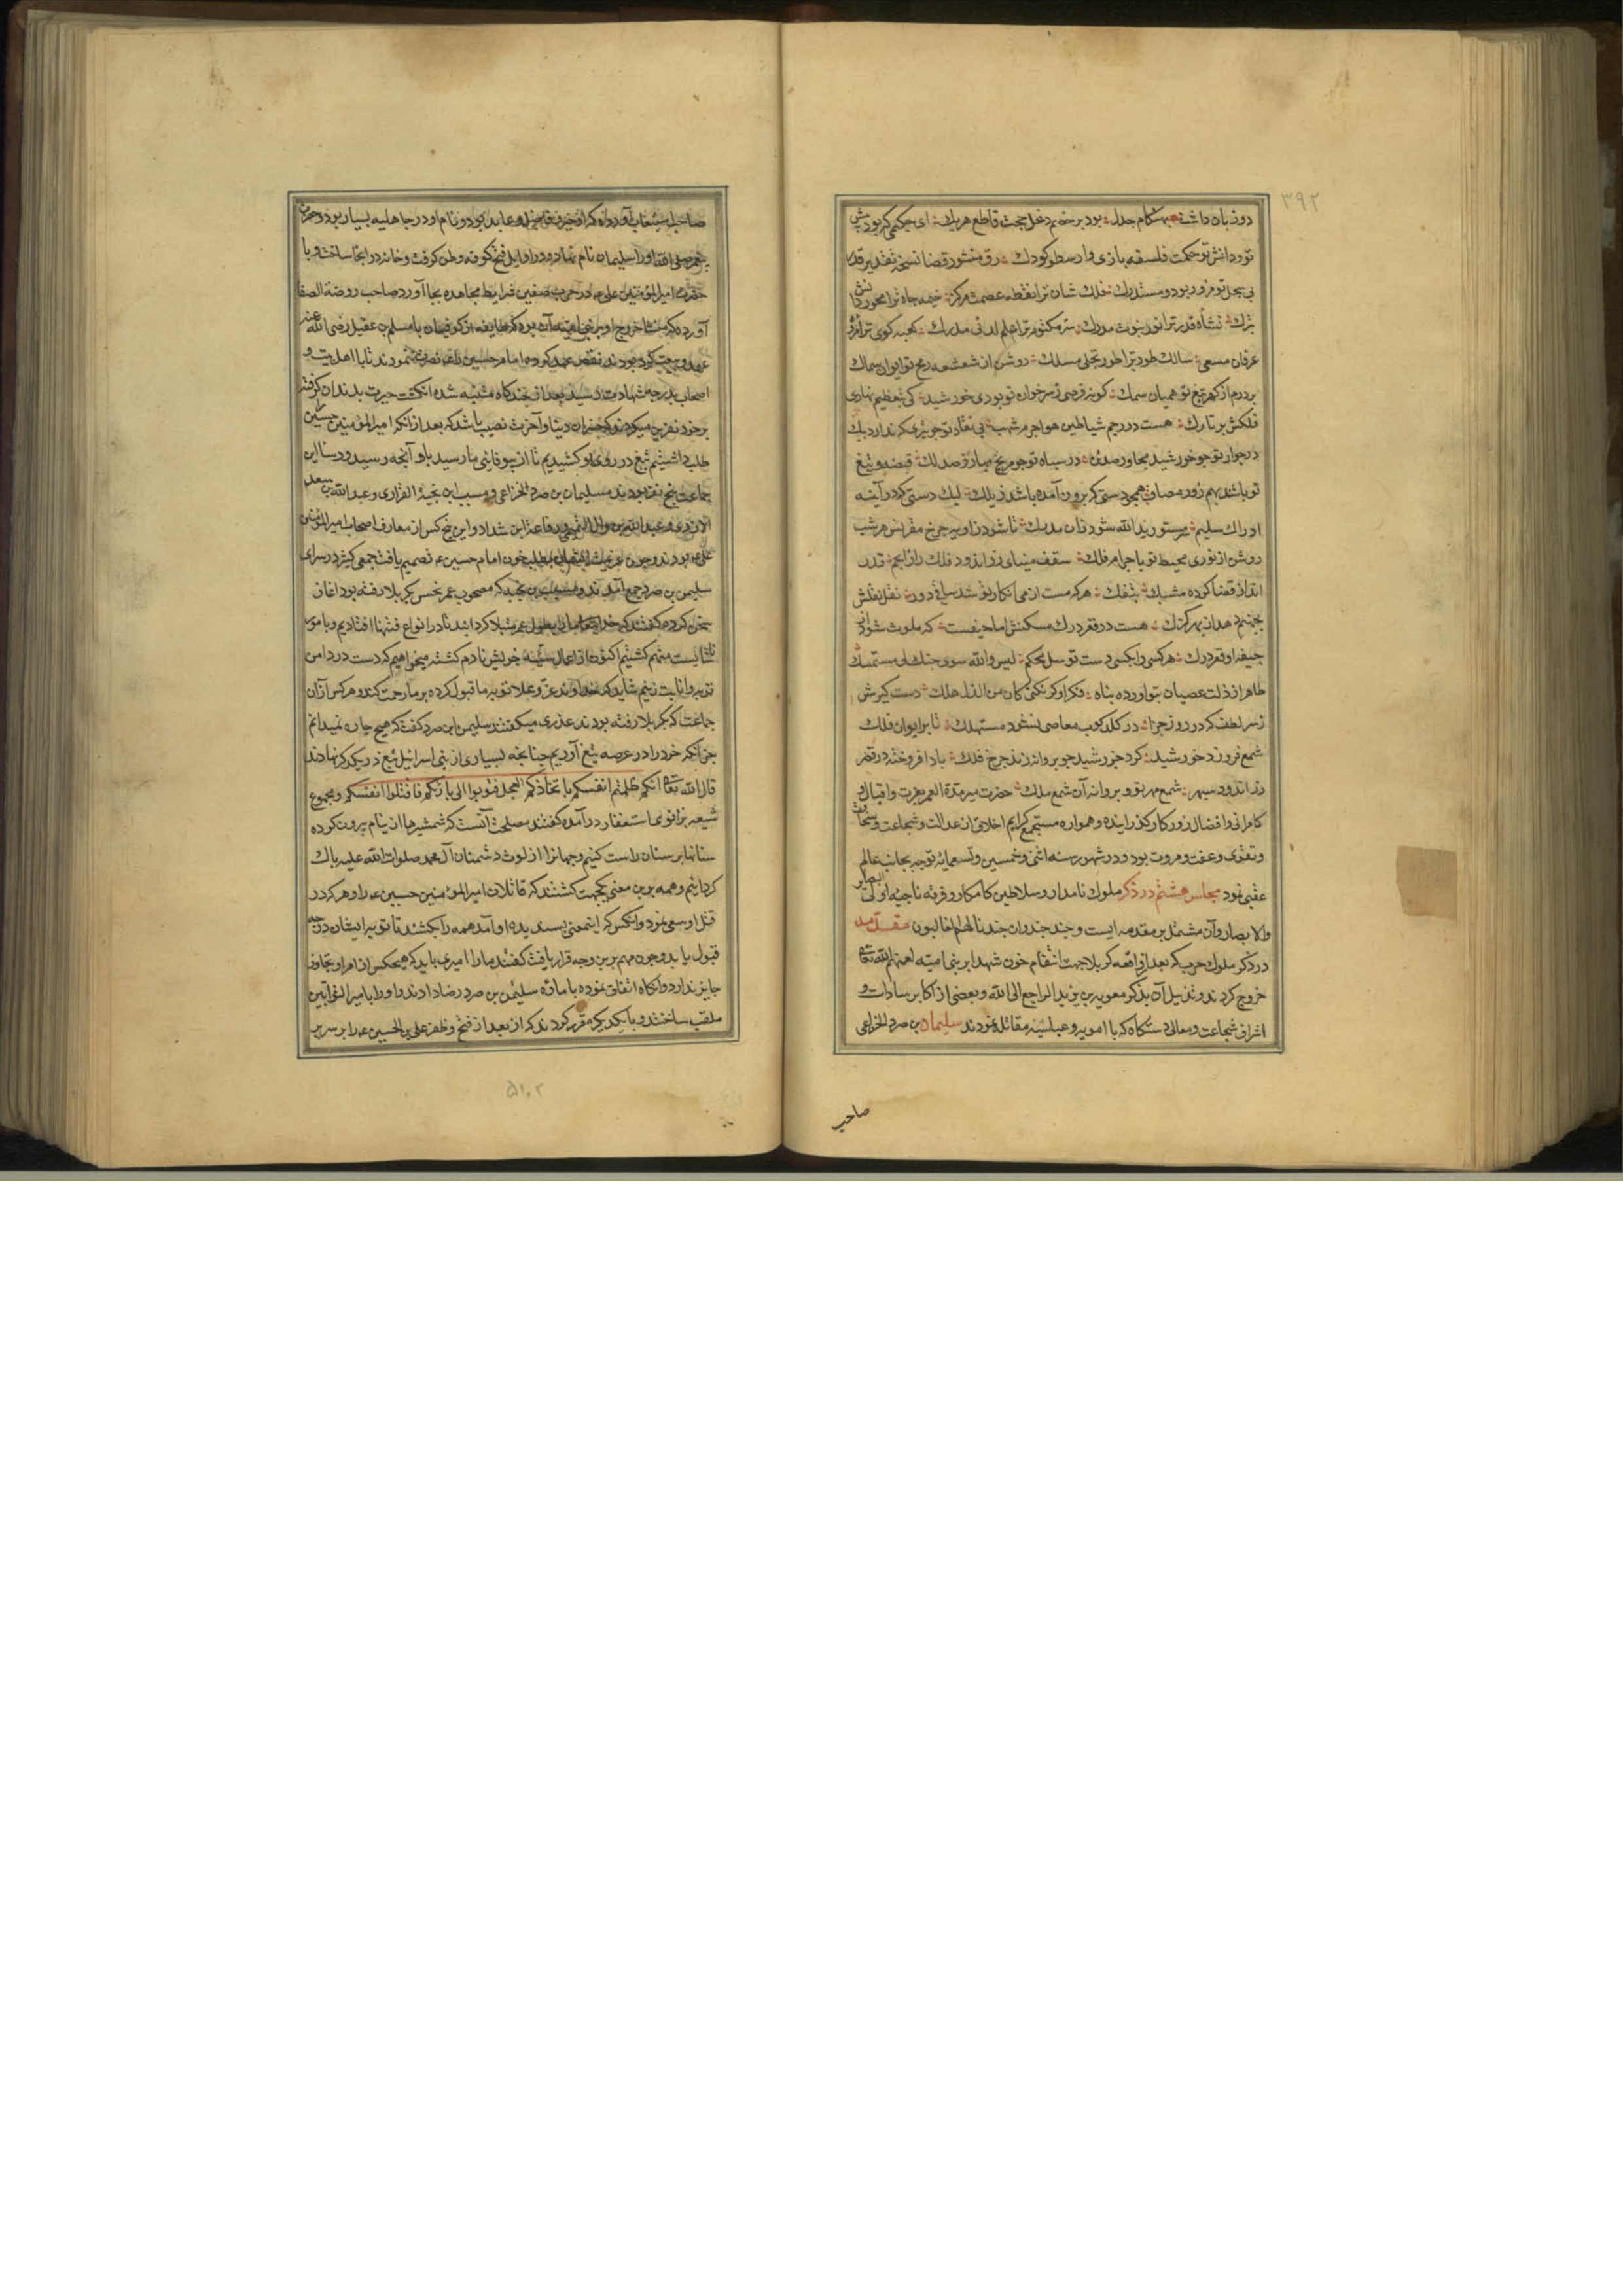 ۳۹۲
دو زبان داشت بهنگام جدل بود بر خصم دغل حجت قاطع هر یک ای حکیمی که بود پیش
تو در دانش تو حکمت فلسفه بازی و ارسطو کودک رق منشور قضا نسخه تقدیر قدر
فلک شان ترا نقطه عصمت مرکز خیمه جاه ترا
نشأه قدر ترا نور نبوت مدرک سر مکنوم ترا علم لدنی مدرک کعبه کوی ترا
عرفان مسعی سالک طور ترا طور تجلی مسلک روشن از شعشعه رمح تو ایوان سماک
بر درم از کهر تیغ تو همیان سمک خوان تو بودی خورشید کی بتعظیم نهادی
فلکش بر تارک هست در رجم شیاطین هواجرم شهب
در جوار تو چو خورشید مجاور صد در سپاه تو چو مریخ مبارز صد لک قبضه و تیغ
تو باشد بهم روز مصاف همچو دستی که برون آمده باشد لیک دستی که در آینه
ادراک سلیم یدالله شود
روشن از نوری محیط تو باجرام فلک سقف مینای زراندود فلک را زانجم قدر
انداز قضا کرده مشبک هر که مست از می انکار تو شد
هست در قعر درک مسکنش اما حیفست که ملوث شود از
جیفه او قعر درک هر کسی را بکسی دست توسل محکم لیس والله سوی حبک لی مستمسک
طاهر از ذلت عصیان بتو آورده پناه فکر او کن من الذل هلک دست گیرش
ز سر لطف که در روز جزا در لکدکوب معاصی نشود مستهلک تا بر ایوان فلک
شمع فروزد خورشید کرد خورشید چو پروانه زند چرخ فلک باد افروخته در قصر
زراندود سپهر شمع مهر تو و پروانه آن شمع ملک حضرت میر مدة العمر بعزت و اقبال
کامرانی و افضال روزگار گذرانیده و همواره مستجمع کرایم اخلاق از عدالت و شجاعت و سخاوت
و تقوی و عفت و مروت بود و در شهور سنه اثنی و خمسین و تسعمایه توجه بجانب عالم
عقبی نمود مجلس هشتم در ذکر ملوک نامدار و سلاطین کامکار و فرقه ناجیه اولی البصایر
والابصار و آن مشتمل بر مقدمه ایست و چند جند وان جندنا لهم الغالبون مقدمه
در ذکر ملوک حرب که بعد از واقعه کربلا جهت انتقام خون شهدا بر بنی امیه لعنهم الله تعالی
خروج کردند و تذییل آن بذکر معویه بن یزید الراجع الی الله و بعضی از اکابر سادات و
اشراف شجاعت و معالی دستگاه که با امویه و عباسیه مقاتله نمودند سلیمان بن صرد الخزاعی
صاحب
صاحب استیعاب آورده که او خیر و فاضل و عابد بود و نام او در جاهلیه یسار بود و حضرت
پیغمبر صلی الله او را سلیمان نام نهاد و در اوایل فتح کوفه وطن گرفت و خانه در آنجا ساخت و با
حضرت امیرالمؤمنین علی در حرب صفین شرایط مجاهده بجا آورد صاحب روضة الصفا
آورده که منشأ خروج او بر بنی امیه آن بود که طایفه از کوفیان با مسلم بن عقیل رضی الله عنه
عهد و بیعت کرده بودند نقض عهد کرده امام حسین را نصرت ننمودند تا با اهل بیت و
اصحاب بدرجه شهادت رسید بعد از چندگاه متنبه شده انگشت حیرت بدندان گرفته
بر خود نفرین میکردند که خسران دنیا و آخرت نصیب باشد که بعد از آنکه امیرالمؤمنین حسین را
طلب داشتیم تیغ در روی او کشیدیم تا از بیوفایی ما رسید باو آنچه رسید و رؤسا این
جماعت پنج نفر بودند سلیمان بن صرد الخزاعی و مسیب ابن نجبة الفزاری و عبدالله بن سعد
الازدی و عبدالله بن وال التمیمی و رفاعة ابن شداد و این پنج کس از معارف اصحاب امیرالمؤمنین
علی بودند و چون عزیمت ایشان بطلب خون امام حسین تصمیم یافت جمعی کثیر در سرای
سلیمن بن صرد جمع آمدند و مسیب بن نجبه که مصحوب عمر نحس بکربلا رفته بود آغاز
سخن کرده گفت که خدای تعالی ما را بطول عمر مبتلا کردانید تا در انواع فتنها افتادیم و بامور
ناشایست متهم کشتیم اکنون از اعمال سیئه خویش نادم کشته میخواهیم که دست در دامن
توبه و انابت زنیم شاید که خداوند عز و علا توبه ما قبول کرده بر ما رحمت کند و هر کس از آن
جماعت که بکربلا رفته بودند عذری میگفتند سلیمن ابن صرد گفت که هیچ چاره نمیدانم
جز آنکه خود را در عرصه تیغ آوریم چنانچه بسیاری از بنی اسرائیل تیغ در یکدیگر نهادند
قال الله تعالی انکم ظلمتم انفسکم باتخاذکم العجل فتوبوا الی بارئکم فاقتلوا انفسکم و مجموع
شیعه بزانوی استغفار درآمده گفتند مصلحت آنست که شمشیرها از نیام بیرون کرده
سنانها بر سنان راست کنیم و جهانرا از لوث دشمنان آل محمد صلوات الله علیه پاک
کردانیم و همه برین معنی یکجهت کشتند که قاتلان امیرالمؤمنین حسین را و هر که در
قتل او سعی نمود و آنکس که اینمعنی پسندیده او آمد همه را بکشند تا توبه ایشان درجه
قبول یابد و چون مهم برین وجه قرار یافت گفتند ما را امیری باید که هیچکس از امر او تجاوز
جایز ندارد و آنگاه اتفاق نموده بامارة سلیمن بن صرد رضا دادند و او را بامیر التوابین
ملقب ساختند و با یکدیگر مقرر کردند که از بعد از فتح و ظفر علی بن الحسین را بر سریر
۵۱۰۲